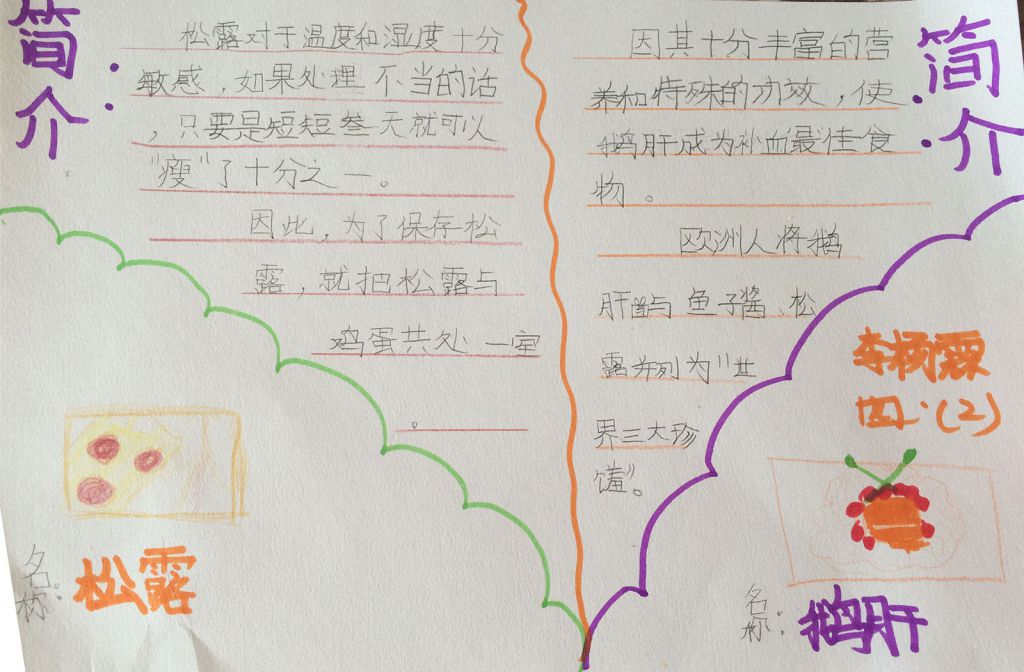 简介：
松露对于温度和湿度十分
敏感，如果处理不当的话
，只要是短短叁天就可以
“瘦”了十分之一。
因此，为了保存松
露，就把松露与
鸡蛋共处一室
。
名称：
松露
简介：
因其十分丰富的营
养和特殊的功效，使
鹅肝成为补血最佳食
物。
欧洲人将鹅
肝与鱼子酱、松
露并列为“世
界三大珍
馐”。
李杨霖
四.（2）
名称：
鹅肝